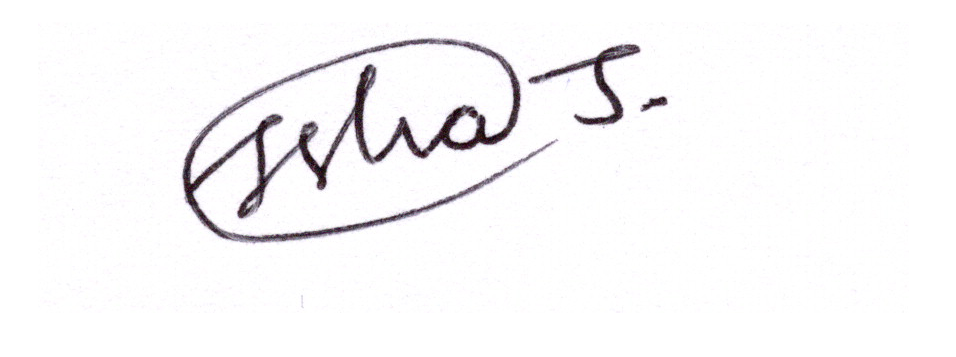 Isha J.